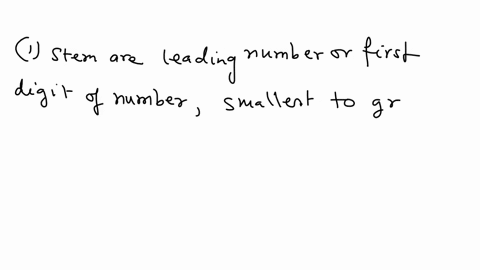 (1) Stem are leading number or first
digit of number, smallest to gr